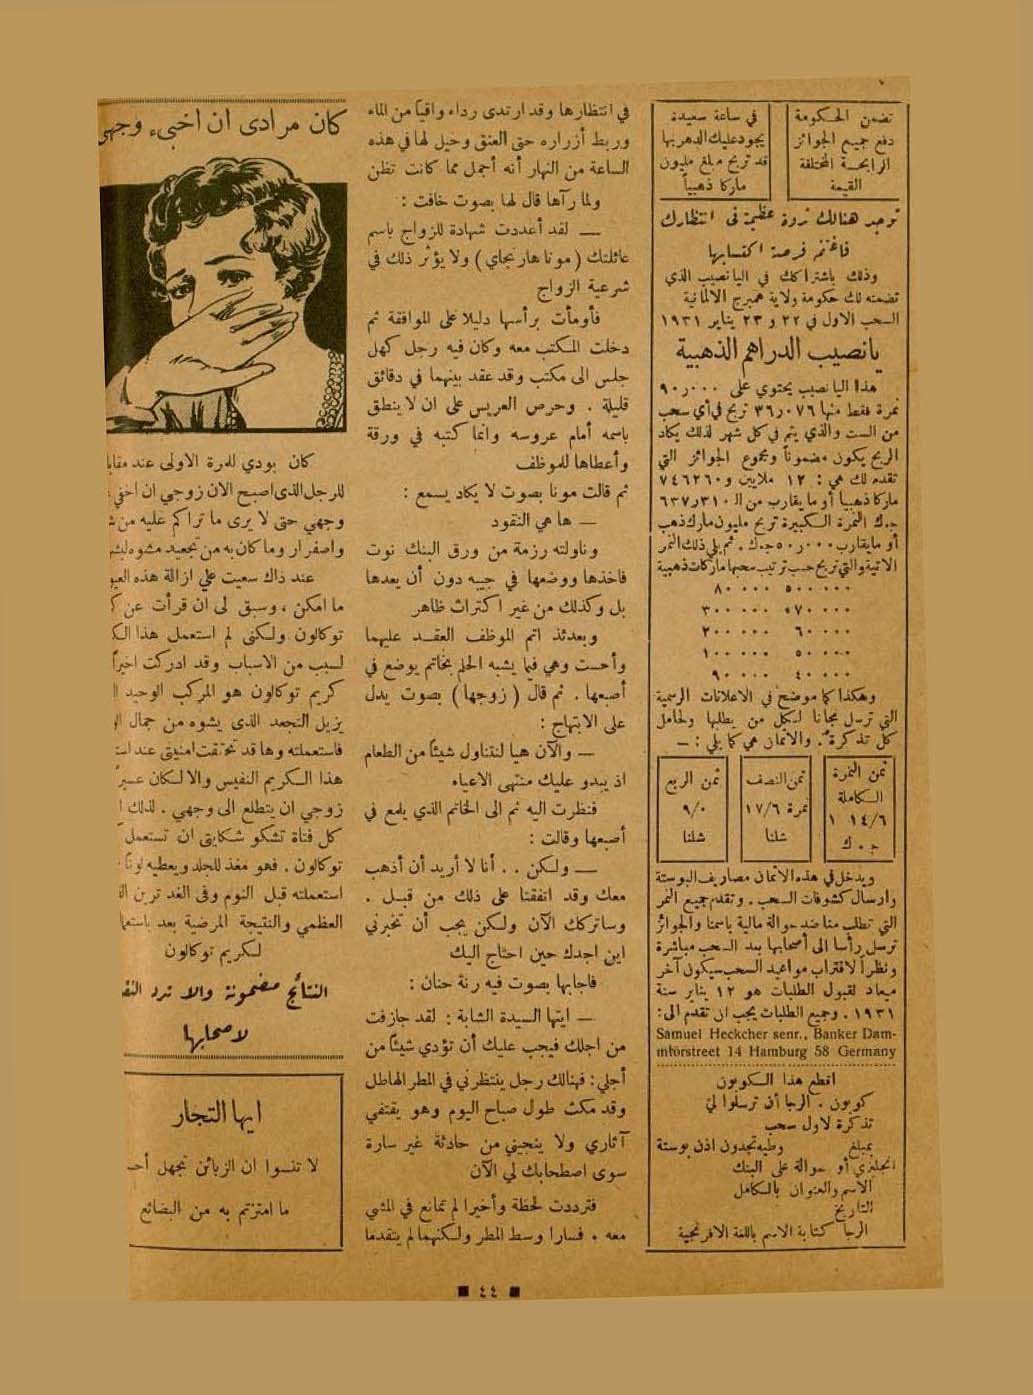 تضمن الحكومة
دفع جميع الجوائز
الرابحة المختلفة
القيمة
في ساعة سعيدة
يجود عليك الدهر بها
قد تربح مبلغ مليون
ماركا ذهبياً
توجد هنالك ثروة عظيمة فى انتظارك
فاغتنم فرصة اكتسابها
وذلك باشتراكك في اليانصيب الذي
تضمنه لك حكومة ولاية همبرج الالمانية
السحب الاول في ٢٢ و ٢٣ يناير ١٩٣١
يانصيب الدراهم الذهبية
هذا اليانصيب يحتوي على ٩٠ر٠٠٠
نمرة فقط منها ٣٦ر٠٧٦ تربح في أي سحب
من الست والذي يتم في كل شهر لذلك يكاد
الربح يكون مضموناً ومجموع الجوائز التي
تقدمه لك هي : ١٢ ملايين و٧٤٦٢٦٠
ماركا ذهبيا أو ما يقارب من الـ ٦٣٧ر٣١٠
ج.ك النمرة الكبيرة تربح مليون مارك ذهب
أو ما يقارب ٥٠ر٠٠٠ ج.ك . ثم يلي ذلك النمر
الاتية والتي تربح حسب ترتيب سحبها ماركات ذهبية
٥٠٠٠٠٠ ٨٠٠٠٠
٤٧٠٠٠٠ ٣٠٠٠٠٠
٦٠٠٠٠ ٢٠٠٠٠٠
٥٠٠٠٠ ١٠٠٠٠٠
٤٠٠٠٠ ٩٠٠٠٠
وهكذا كما موضح في الاعلانات الرسمية
التي ترسل مجانا لكل من يطلبها ولحامل
كل تذكرة . والاثمان هي كما يلي : —
ثمن النمرة
الكاملة
١٤/٦ ١
ج.ك
ثمن النصف
نمرة ١٧/٦
شلنا
ثمن الربع
٩/٠
شلنا
ويدخل في هذه الاثمان مصاريف البوستة
وارسال كشوفات السحب . وتقدم جميع النمر
التي تطلب منا ضد حوالة مالية باسمنا والجوائز
ترسل رأسا الى أصحابها بعد السحب مباشرة
ونظراً لاقتراب مواعيد السحب سيكون آخر
ميعاد لقبول الطلبات هو ١٢ يناير سنة
١٩٣١ . وجميع الطلبات يجب ان تقدم الى :
Samuel Heckcher senr., Banker Dam-
mtorstreet 14 Hamburg 58 Germany
اقطع هذا الكوبون
كوبون . الرجا أن ترسلوا لي
تذكرة لاول سحب
بمبلغ وطيه تجدون اذن بوستة
انجليزي أو حوالة على البنك
الاسم والعنوان بالكامل
التاريخ
الرجا كتابة الاسم باللغة الافرنجية
في انتظارها وقد ارتدى رداء واقياً من الماء
وربط أزراره حتى العنق وخيل لها في هذه
الساعة من النهار أنه أجمل مما كانت تظن
ولما رآها قال لها بصوت خافت :
— لقد أعددت شهادة للزواج باسم
عائلتك ( مونا هارنجاي ) ولا يؤثر ذلك في
شرعية الزواج
فأومأت برأسها دليلا على الموافقة ثم
دخلت المكتب معه وكان فيه رجل كهل
جلس الى مكتب وقد عقد بينهما في دقائق
قليلة . وحرص العريس على ان لا ينطق
باسمه أمام عروسه وانما كتبه في ورقة
وأعطاها للموظف
ثم قالت مونا بصوت لا يكاد يسمع :
— ها هي النقود
وناولته رزمة من ورق البنك نوت
فاخذها ووضعها في جيبه دون أن يعدها
بل وكذلك من غير اكتراث ظاهر
وبعدئذ اتم الموظف العقد عليهما
وأحست وهي فيما يشبه الحلم بخاتم يوضع في
أصبعها . ثم قال ( زوجها ) بصوت يدل
على الابتهاج :
— والآن هيا لنتناول شيئاً من الطعام
اذ يبدو عليك منتهى الاعياء
فنظرت اليه ثم الى الخاتم الذي يلمع في
أصبعها وقالت :
— ولكن . . أنا لا أريد أن أذهب
معك وقد اتفقنا على ذلك من قبل .
وساتركك الآن ولكن يجب أن تخبرني
اين اجدك حين احتاج اليك
فاجابها بصوت فيه رنة حنان :
— ايتها السيدة الشابة : لقد جازفت
من اجلك فيجب عليك أن تؤدي شيئاً من
أجلي : فهنالك رجل ينتظرني في المطر الهاطل
وقد مكث طول صباح اليوم وهو يقتفي
آثاري ولا ينجيني من حادثة غير سارة
سوى اصطحابك لي الآن
فترددت لحظة وأخيرا لم تمانع في المشي
معه . فسارا وسط المطر ولكنهما لم يتقدما
كان مرادى ان اخبىء وجهى
كان بودي للمرة الاولى عند
للرجل الذى اصبح الان زوجي ان اخفي
وجهي حتى لا يرى ما تراكم عليه من
واصفرار وما كان به من تجعيد مشوه
عند ذاك سعيت علي ازالة هذه
ما امكن ، وسبق لى ان قرأت عن
توكالون ولكنى لم استعمل هذا
لسبب من الاسباب وقد ادركت اخيراً
كريم توكالون هو المركب الوحيد
يزيل التجعد الذى يشوه من جمال
فاستعملته وها قد تحققت امنيتى عند
هذا الكريم النفيس والا لكان
زوجي ان يتطلع الى وجهي . لذلك
كل فتاة تشكو شكايتى ان تستعمل
توكالون . فهو مغذ للجلد ويعطيه
استعملته قبل النوم وفى الغد ترين
العظمي والنتيجة المرضية بعد
لكريم توكالون
النتائج مضمونة والا ترد
لاصحابها
ايها التجار
لا تنسوا ان الزبائن تجهل
ما امتزتم به من البضائع
٤٤